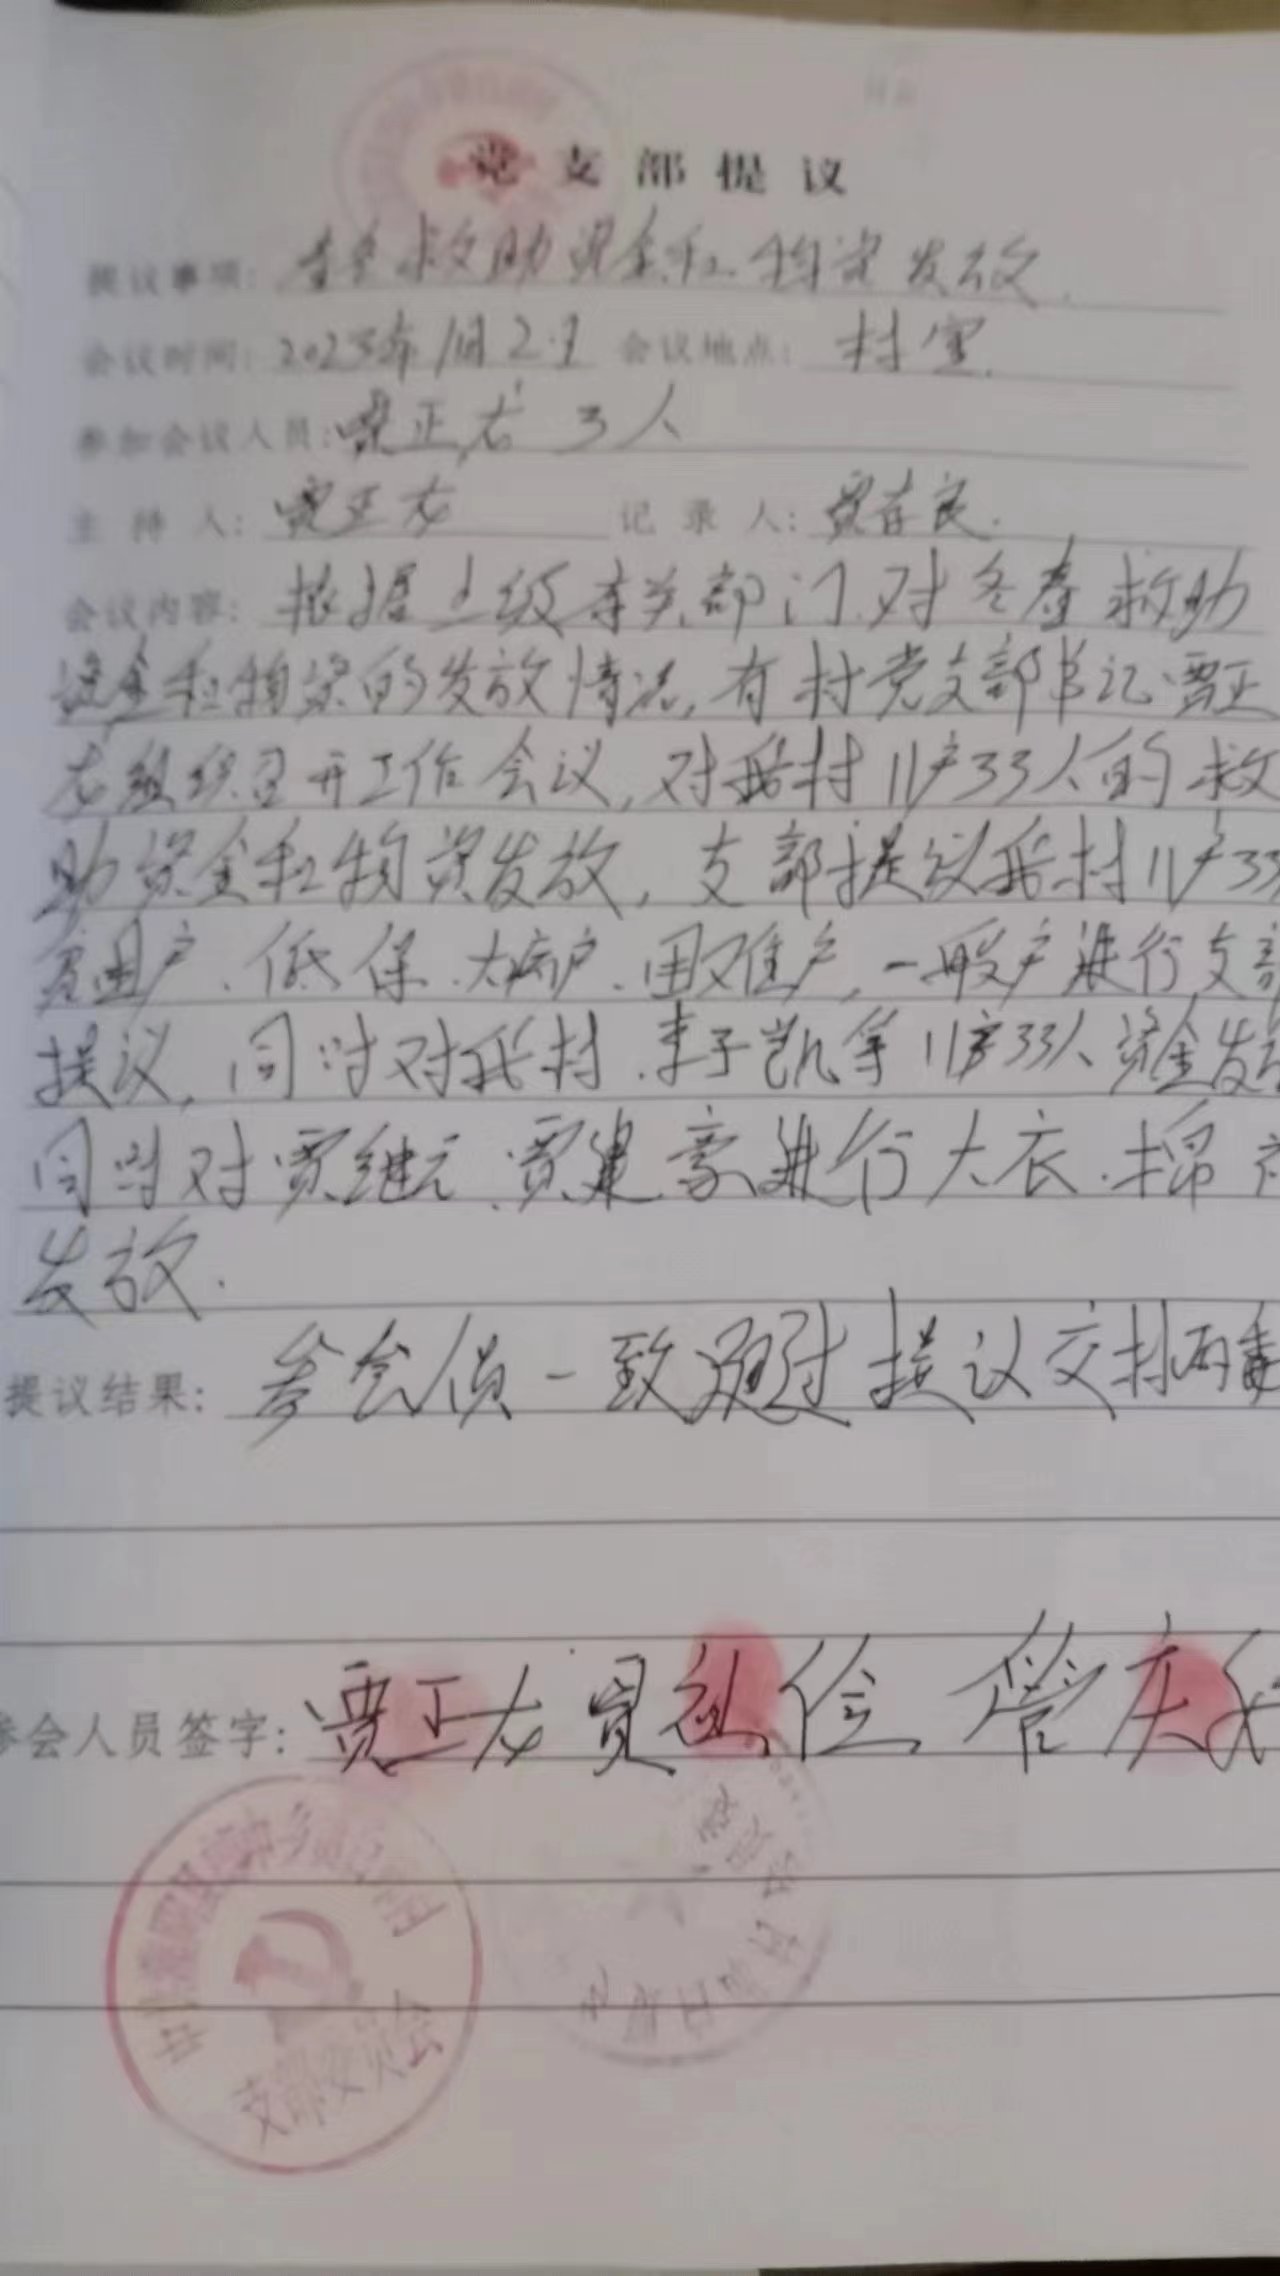 党支部提议
提议事项: 冬春救助资金和物资发放.
会议时间: 2023年1月2日 会议地点: 村室.
参加会议人员: 贾正龙 3人
主持人: 贾正龙 记录人: 贾春良.
会议内容: 根据上级有关部门.对冬春救助
资金和物资的发放情况,有村党支部书记贾正
龙组织召开工作会议,对我村11户33人的救
助资金和物资发放,支部提议我村11户33
贫困户.低保.大病户.困难户,一般户进行支部
提议,同时对我村.李子凯等11户33人资金发放
同时对贾继元.贾建豪进行大衣.棉
发放.
提议结果: 参会人员一致通过提议交村两委
参会人员签字: 贾正龙 贾 俭 管庆
支部委员会